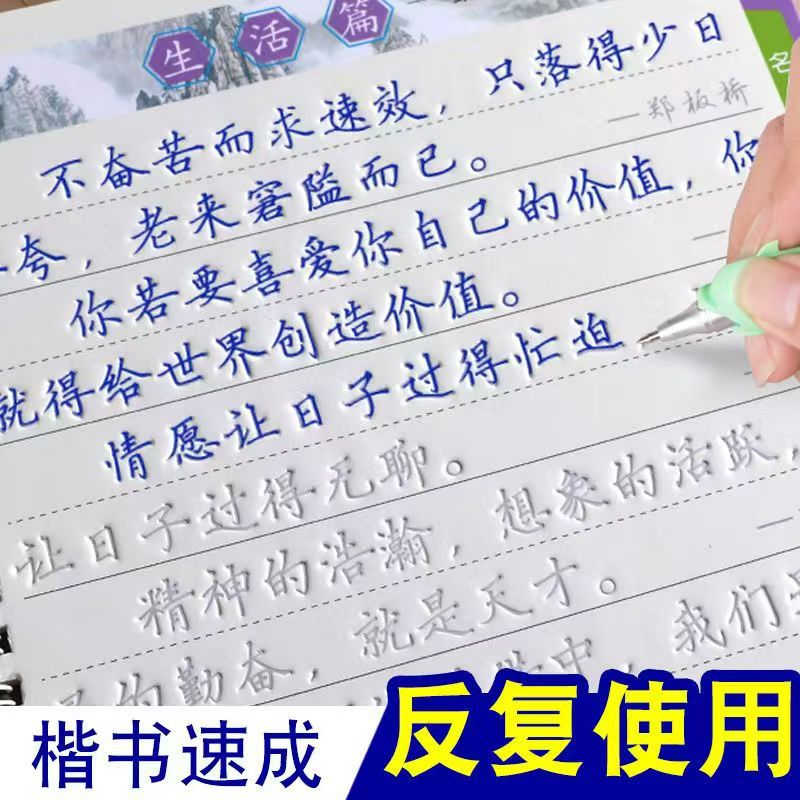 生活篇
名
不奋苦而求速效，只落得少日
—郑板桥
夸，老来窘隘而已。
你若要喜爱你自己的价值，你
就得给世界创造价值。
情愿让日子过得忙迫
让日子过得无聊。
精神的浩瀚，想象的活跃，
的勤奋，就是天才。
中，我们
楷书速成
反复使用